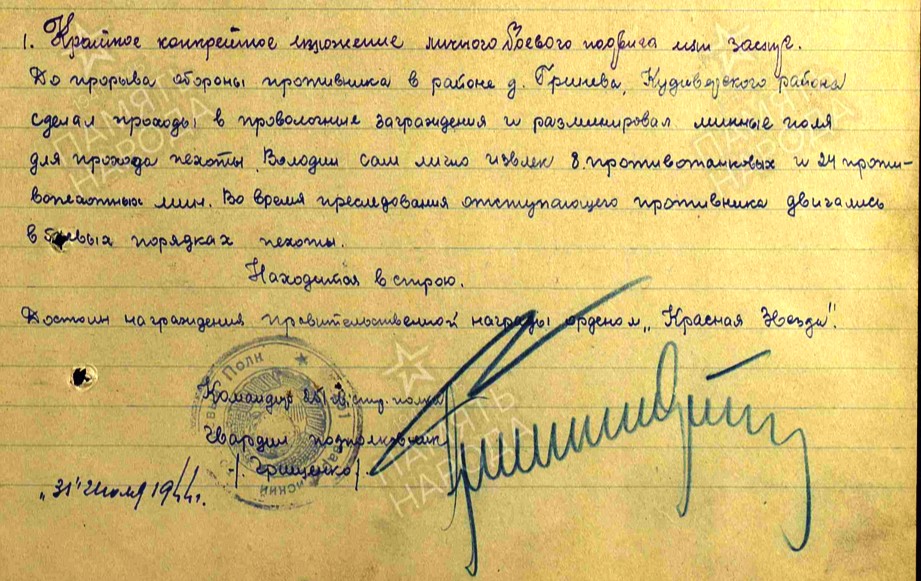 1. Краткое конкретное изложение личного боевого подвига или заслуг.
До прорыва обороны противника в районе д. Гринева, Кудеверского района
сделал проходы в проволочные заграждения и разминировал минные поля
для прохода пехоты. Володин сам лично извлек 8 противотанковых и 24 проти-
вопехотных мин. Во время преследования отступающего противника двигались
в боевых порядках пехоты.
Находится в строю.
Достоин награждения правительственной награды орденом „Красная Звезда".
Командир гв. стр. полка
Гвардии подполковник
/Грищенко/
„31" июля 1944г.
ПАМЯТЬ НАРОДА
ПАМЯТЬ НАРОДА
ПАМЯТЬ НАРОДА
ПАМЯТЬ НАРОДА